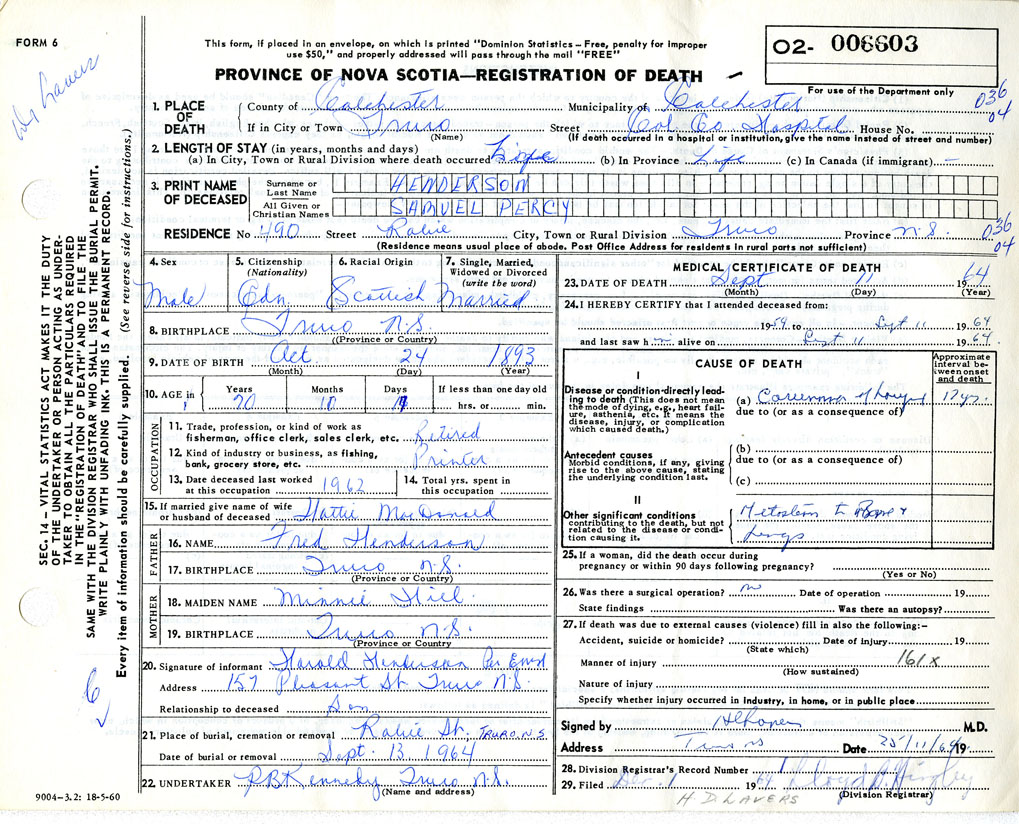 FORM 6
This form, if placed in an envelope, on which is printed "Dominion Statistics – Free, penalty for improper
use $50," and properly addressed will pass through the mail "FREE"
02- 006603
PROVINCE OF NOVA SCOTIA—REGISTRATION OF DEATH
For use of the Department only
036
04
1. PLACE OF DEATH
County of Colchester Municipality of Colchester
If in City or Town Truro Street Col. Co. Hospital House No.
(Name) (If death occurred in a hospital or institution, give the name instead of street and number)
2. LENGTH OF STAY (in years, months and days)
(a) In City, Town or Rural Division where death occurred Life (b) In Province Life (c) In Canada (if immigrant) –
3. PRINT NAME OF DECEASED
Surname or Last Name HENDERSON
All Given or Christian Names SAMUEL PERCY
RESIDENCE No 490 Street Robie City, Town or Rural Division Truro Province N.S.
036
04
(Residence means usual place of abode. Post Office Address for residents in rural parts not sufficient)
4. Sex
Male
5. Citizenship (Nationality)
Cdn.
6. Racial Origin
Scottish
7. Single, Married, Widowed or Divorced (write the word)
Married
8. BIRTHPLACE Truro N.S.
(Province or Country)
9. DATE OF BIRTH Oct. 24 1893
(Month) (Day) (Year)
10. AGE in Years Months Days If less than one day old
70 10 hrs. or min.
OCCUPATION
11. Trade, profession, or kind of work as
fisherman, office clerk, sales clerk, etc. Retired
12. Kind of industry or business, as fishing,
bank, grocery store, etc. Printer
13. Date deceased last worked
at this occupation 1962
14. Total yrs. spent in
this occupation
15. If married give name of wife
or husband of deceased Hattie MacDonald
FATHER
16. NAME Fred Henderson
17. BIRTHPLACE Truro N.S.
(Province or Country)
MOTHER
18. MAIDEN NAME Minnie Hill
19. BIRTHPLACE Truro N.S.
(Province or Country)
20. Signature of informant Harold Henderson Per
Address 157 Pleasant St. Truro N.S.
Relationship to deceased Son
21. Place of burial, cremation or removal Robie St. TRURO, N.S.
Date of burial or removal Sept. 13 1964
22. UNDERTAKER Kennedy Truro N.S.
(Name and address)
9004–3.2: 18-5-60
MEDICAL CERTIFICATE OF DEATH
23. DATE OF DEATH Sept 11 1964
(Month) (Day) (Year)
24. I HEREBY CERTIFY that I attended deceased from:
1959 to Sept 11 1964
and last saw him alive on Sept 11 1964
CAUSE OF DEATH
Approximate interval between onset and death
I
Disease or condition directly leading to death (This does not mean the mode of dying, e.g., heart failure, asthenia, etc. It means the disease, injury, or complication which caused death.)
(a) Carcinoma of Larynx
due to (or as a consequence of)
Antecedent causes
Morbid conditions, if any, giving rise to the above cause, stating the underlying condition last.
(b)
due to (or as a consequence of)
(c)
II
Other significant conditions
contributing to the death, but not related to the disease or condition causing it.
to Bone &
lungs
25. If a woman, did the death occur during
pregnancy or within 90 days following pregnancy?
(Yes or No)
26. Was there a surgical operation? no Date of operation 19
State findings Was there an autopsy?
27. If death was due to external causes (violence) fill in also the following:–
Accident, suicide or homicide? Date of injury 19
(State which)
Manner of injury 161X
(How sustained)
Nature of injury
Specify whether injury occurred in industry, in home, or in public place
Signed by M.D.
Address Truro NS Date 25/11/64 19
28. Division Registrar's Record Number
29. Filed Dec. 1 1964 Lloyd
H D LAVERS
(Division Registrar)
SEC. 14 – VITAL STATISTICS ACT MAKES IT THE DUTY
OF THE UNDERTAKER OR PERSON ACTING AS UNDER-
TAKER TO OBTAIN ALL THE PARTICULARS REQUIRED
IN THE "REGISTRATION OF DEATH" AND TO FILE THE
SAME WITH THE DIVISION REGISTRAR WHO SHALL ISSUE THE BURIAL PERMIT.
WRITE PLAINLY WITH UNFADING INK. THIS IS A PERMANENT RECORD.
Every item of information should be carefully supplied. (See reverse side for instructions.)